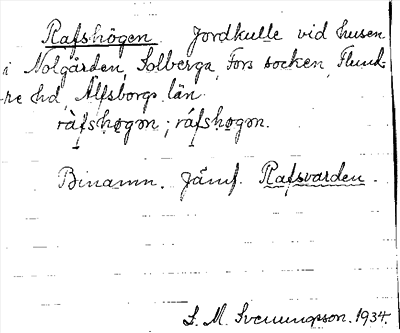 Rafshögen. Jordkulle vid husen
i Nolgården, Solberga, Fors socken, Flund-
re hd, Älfsborgs län.
ràfshøgon; ráfshøgon.
Binamn. Jämf. Rafsvarden.
S. M. Svenungsson. 1934.